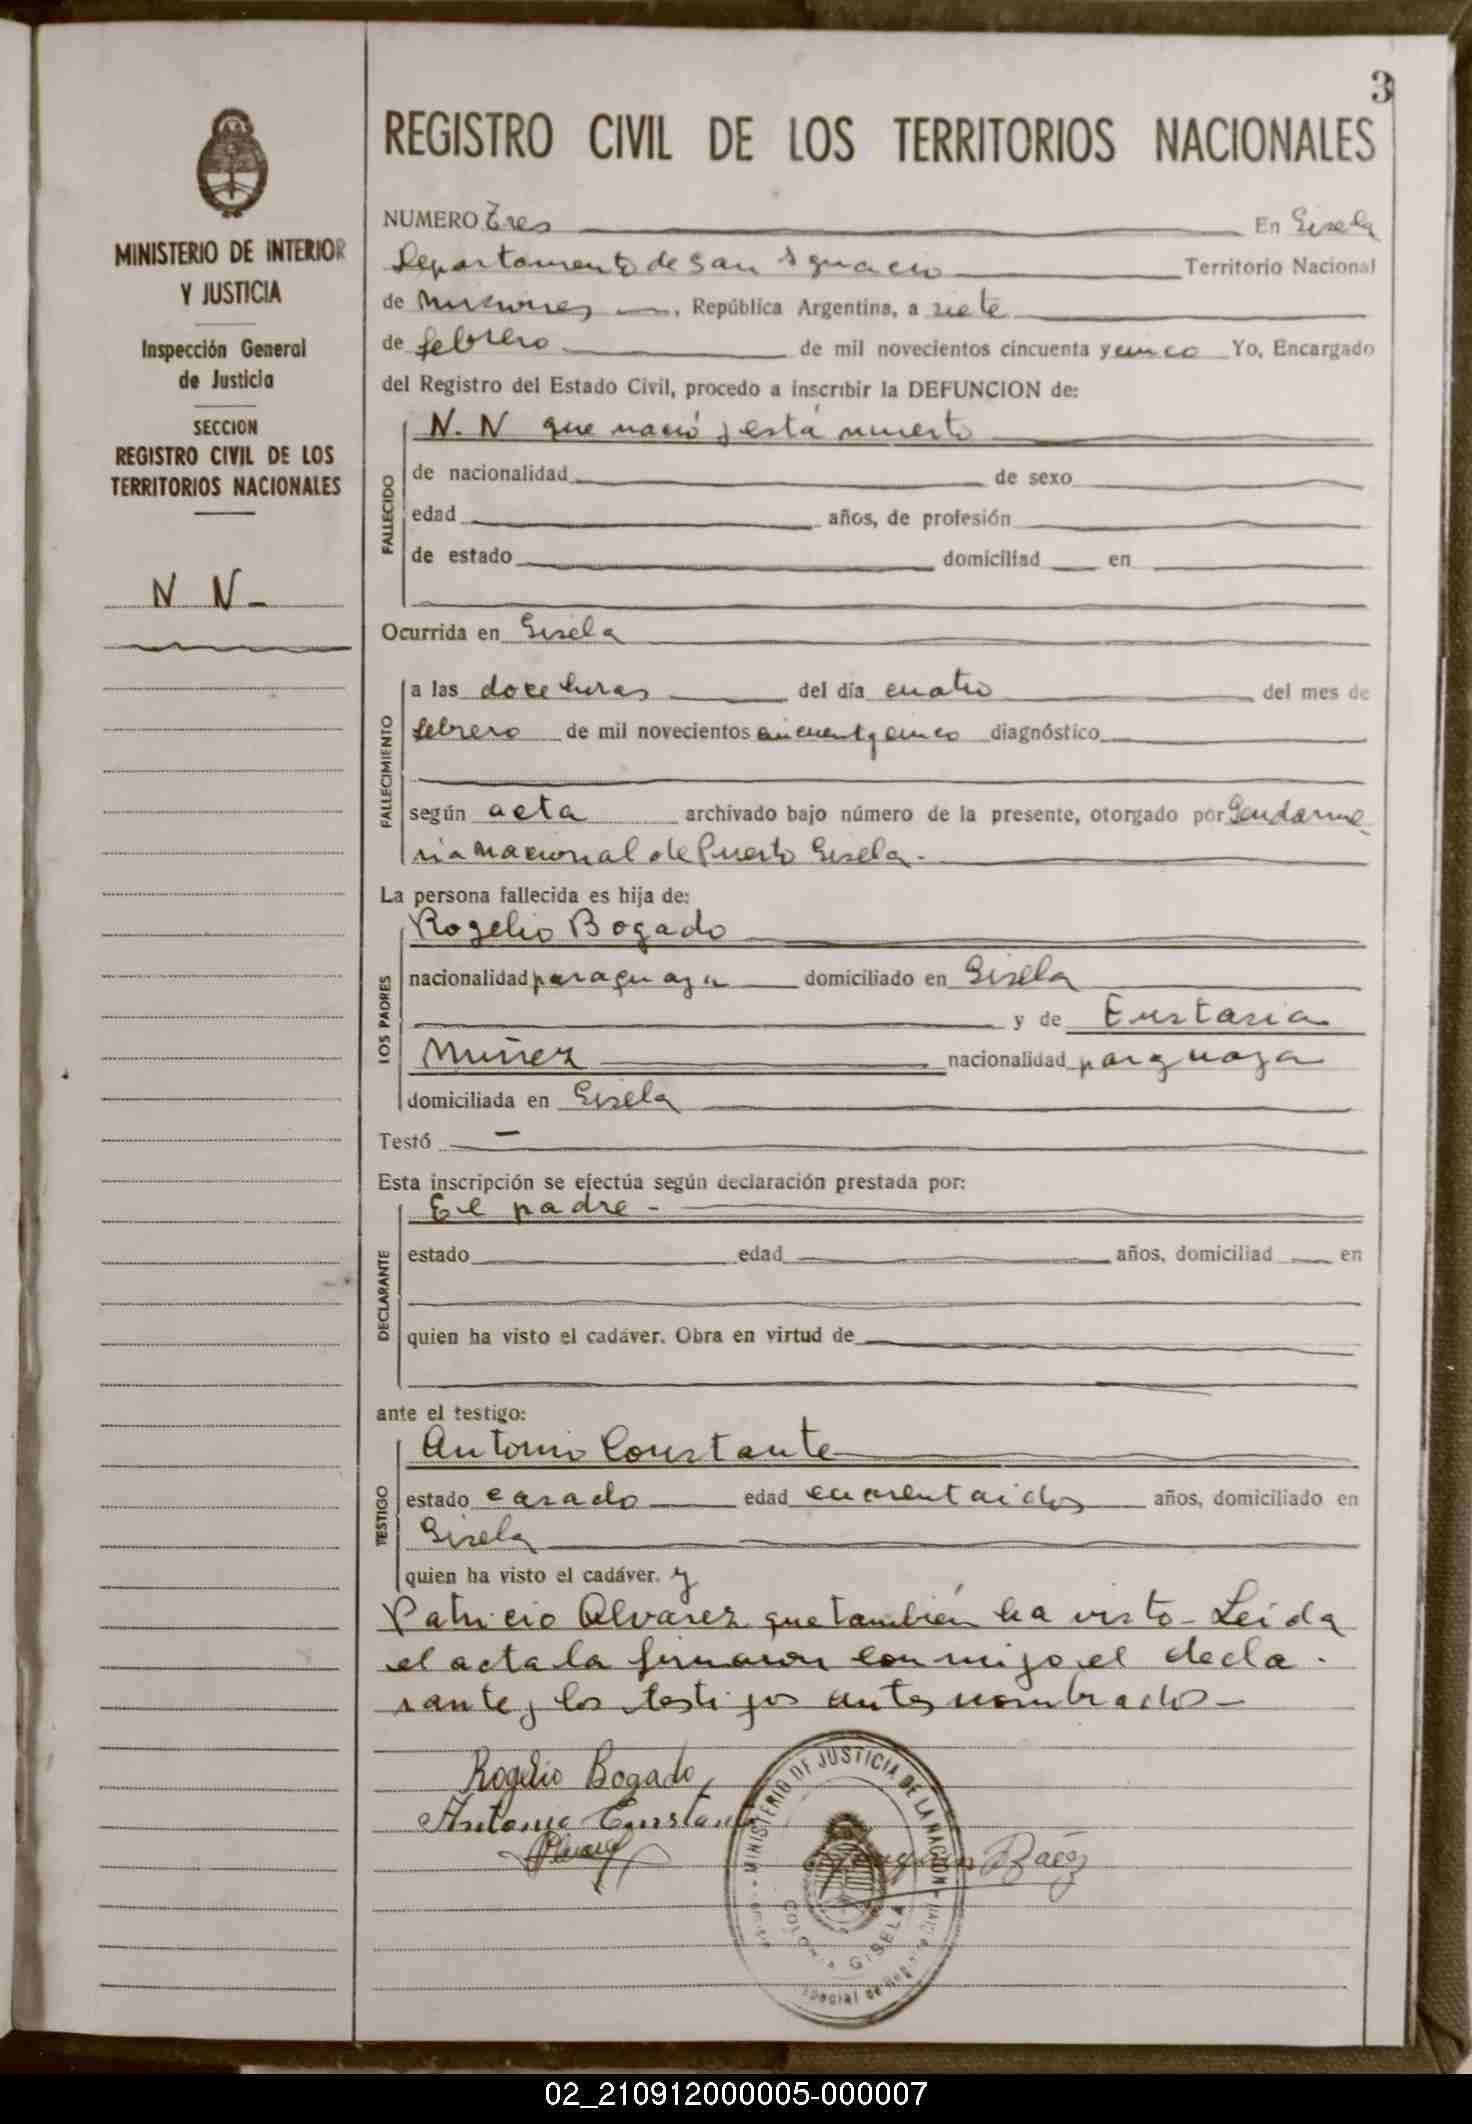 3
REGISTRO CIVIL DE LOS TERRITORIOS NACIONALES
MINISTERIO DE INTERIOR
Y JUSTICIA
Inspección General
de Justicia
SECCION
REGISTRO CIVIL DE LOS
TERRITORIOS NACIONALES
N N -
NUMERO Tres En Gisela
Departamento de San Ignacio Territorio Nacional
de Misiones, República Argentina, a siete
de febrero de mil novecientos cincuenta y cinco Yo, Encargado
del Registro del Estado Civil, procedo a inscribir la DEFUNCION de:
N. N que nació y está muerto
FALLECIDO
de nacionalidad de sexo
edad años, de profesión
de estado domiciliad en
Ocurrida en Gisela
FALLECIMIENTO
a las doce horas del día cuatro del mes de
febrero de mil novecientos cincuent y cinco diagnóstico
según acta archivado bajo número de la presente, otorgado por Gendarme
ria Nacional de Puerto Gisela.
La persona fallecida es hija de:
LOS PADRES
Rogelio Bogado
nacionalidad paraguaya domiciliado en Gisela
y de Eustasia
Muñez nacionalidad parguaya
domiciliada en Gisela
Testó -
Esta inscripción se efectúa según declaración prestada por:
DECLARANTE
El padre -
estado edad años, domiciliad en
quien ha visto el cadáver. Obra en virtud de
ante el testigo:
TESTIGO
Antonio Constante
estado casado edad cuarentaidos años, domiciliado en
Gisela
quien ha visto el cadáver. y
Patricio Alvarez que también ha visto - Leida
el acta la firmaron conmigo el decla.
rante y los testigos antes nombrados -
Rogelio Bogado
Antonio Constante
Báez
MINISTERIO DE JUSTICIA DE LA NACION
COLONIA GISELA
02_210912000005-000007